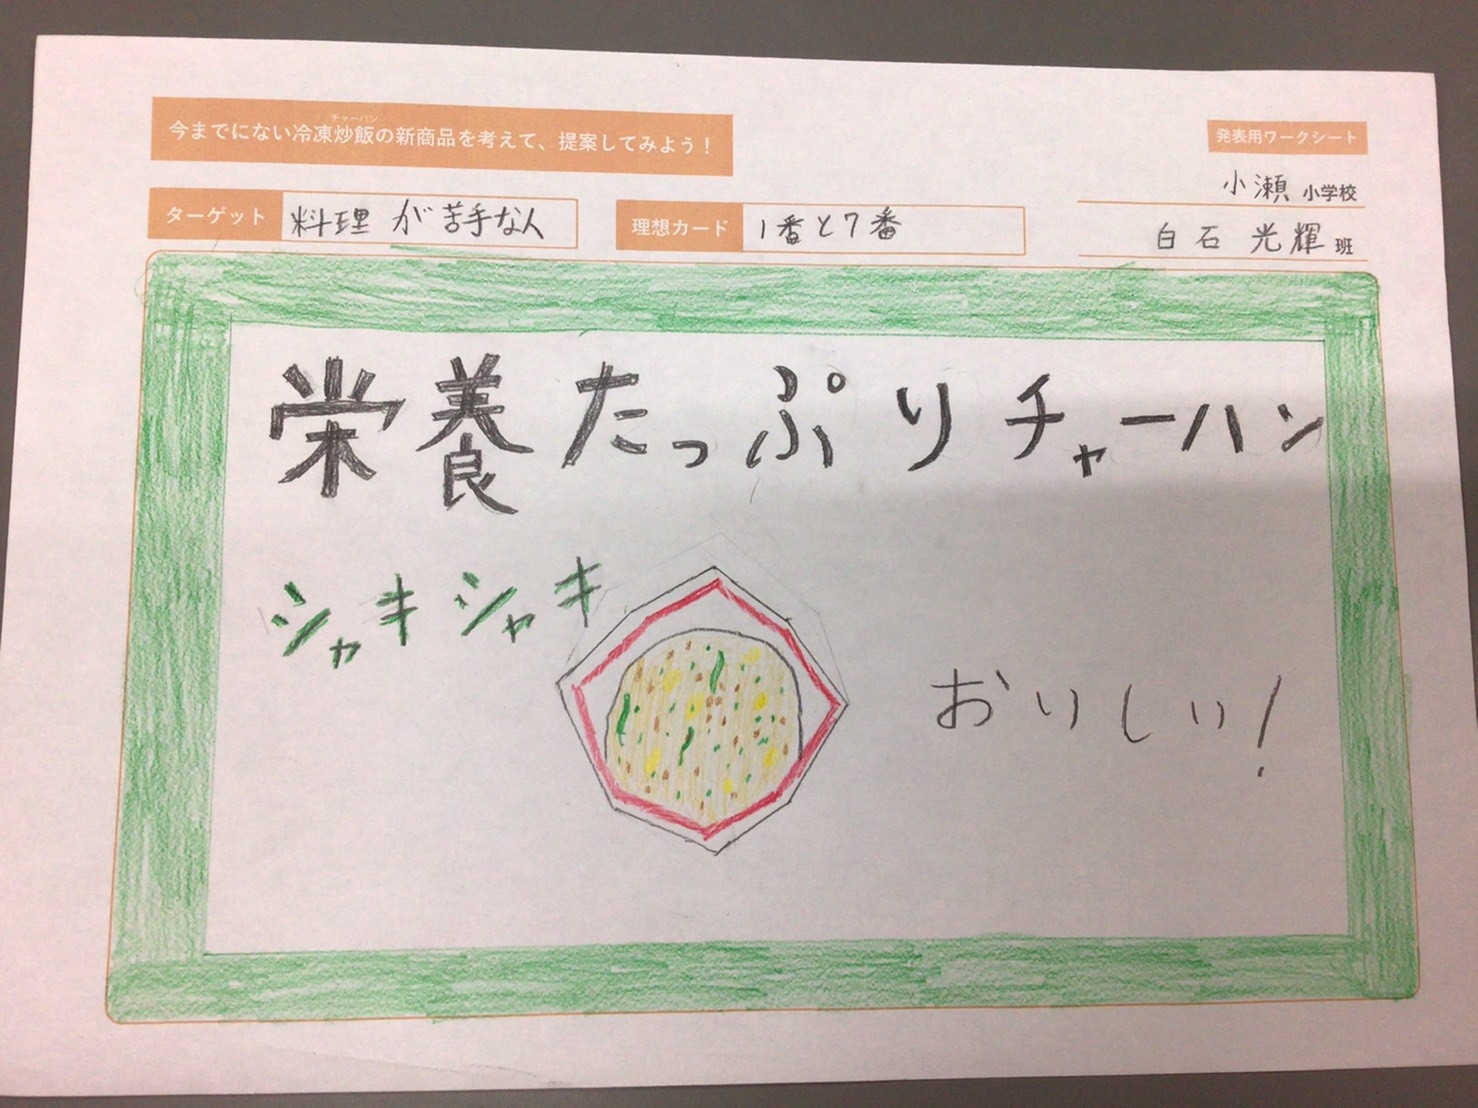 チャーハン
今までにない冷凍炒飯の新商品を考えて、提案してみよう!
発表用ワークシート
小瀬 小学校
ターゲット 料理が苦手な人
理想カード 1番と7番
白石 光輝 班
栄養たっぷりチャーハン
シャキシャキ
おいしい!